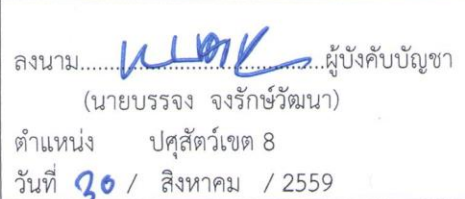 ลงนาม.......................................ผู้บังคับบัญชา
(นายบรรจง จงรักษ์วัฒนา)
ตำแหน่ง ปศุสัตว์เขต 8
วันที่ 30 / สิงหาคม / 2559